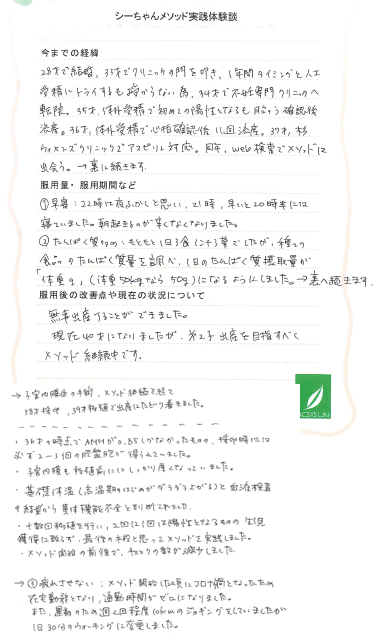 シーちゃんメソッド実践体験談
今までの経緯
28才で結婚、33才でクリニックの門を叩き、1年間タイミングと人工
受精にトライするも授からない為、34才で不妊専門クリニックへ
転院。35才、体外受精で初めての陽性になるも胎のう確認後
流産。36才、体外受精で心拍確認後 流産。37才、
ウィメンズクリニックでアスピリン対応。同年、web検索でメソッドに
出会う。→裏に続きます。
服用量・服用期間など
①早寝:22時は夜ふかしと思い、21時、早いと20時半には
寝ていました。朝起きるのが辛くなくなりました。
②たんぱく質:もともと1日3食でしたが、種々の
食品のたんぱく質量を調べ、1日のたんぱく質摂取量が
「体重g」(体重50kgなら50g)になるようにしました。→裏へ続きます。
服用後の改善点や現在の状況について
無事出産することができました。
現在40才になりましたが、第2子出産を目指すべく
メソッド継続中です。
→子宮内膜症の手術、メソッド継続を経て
38才採卵、39才移植で出産にたどり着きました。
・36才の時点でAMHが0.85しかなかったものの、採卵時には
必ず2〜3個の胚盤胞が得られていました。
・子宮内膜も移植前にはしっかり厚くなっていました。
・基礎体温(高温期のはじめがダラダラ上がる)と血液検査
の結果から黄体機能不全と判断されました。
・十数回移植を行い、2回に1回は陽性となるものの 生児
獲得に至らず、最後の手段と思ってメソッドを実践しました。
・メソッド開始の前後で、チョコの数が減少しました。
→③疲れさせない:メソッド開始した頃にコロナ禍となったため
在宅勤務となり、通勤時間がゼロになりました。
また、運動のため週2回程度10kmのジョギングをしていましたが
1日30分のウォーキングに変更しました。
ACSYSLIN